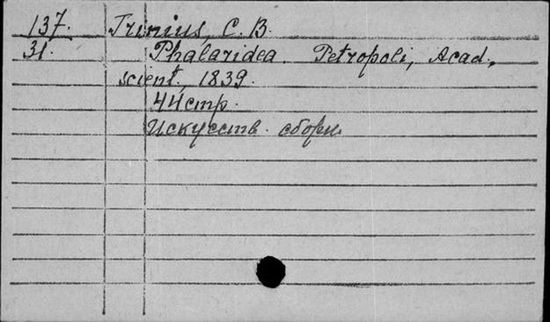 137. Trinius, C. B.
31. Phalaridea. Petropoli, Acad.,
scient, 1839.
44стр.
Искусств. сборн.